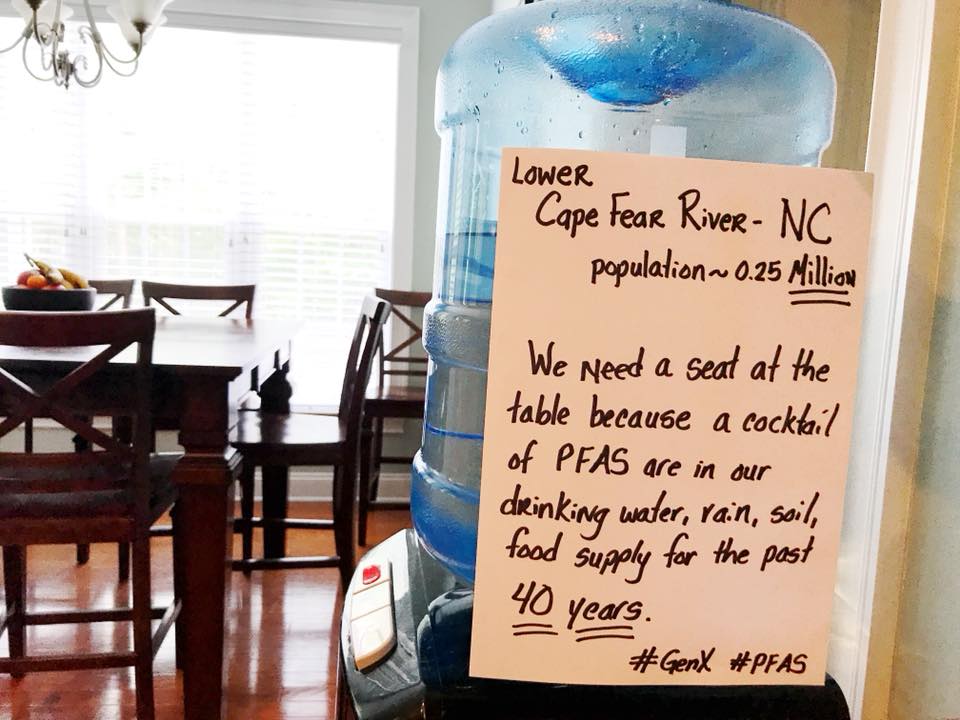 Lower
Cape Fear River - NC
population ~ 0.25 Million
We Need a seat at the
table because a cocktail
of PFAS are in our
drinking water, rain, soil,
food supply for the past
40 years.
#GenX #PFAS